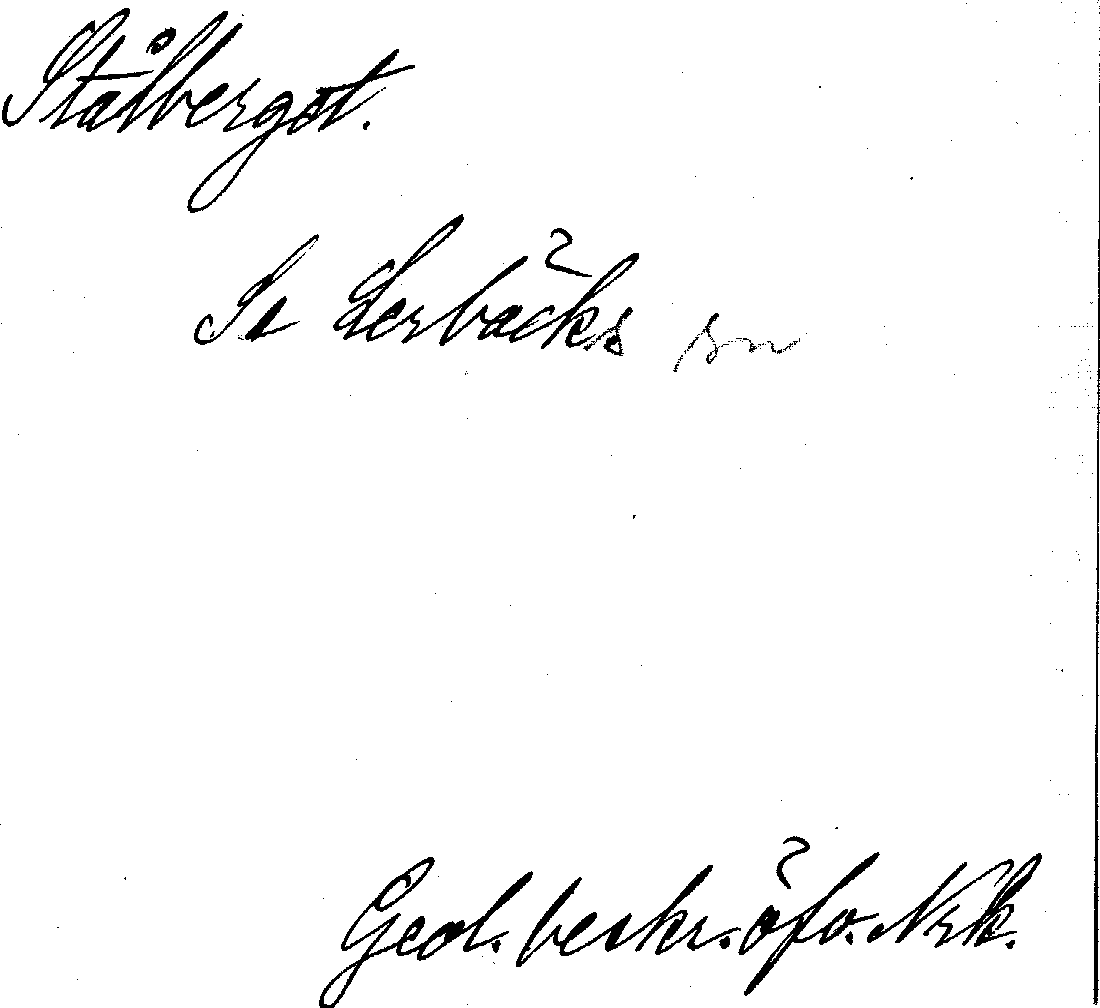 Stålberget.
Se Lerbäcks sn
Geol. beskr. öfv. Nrk.